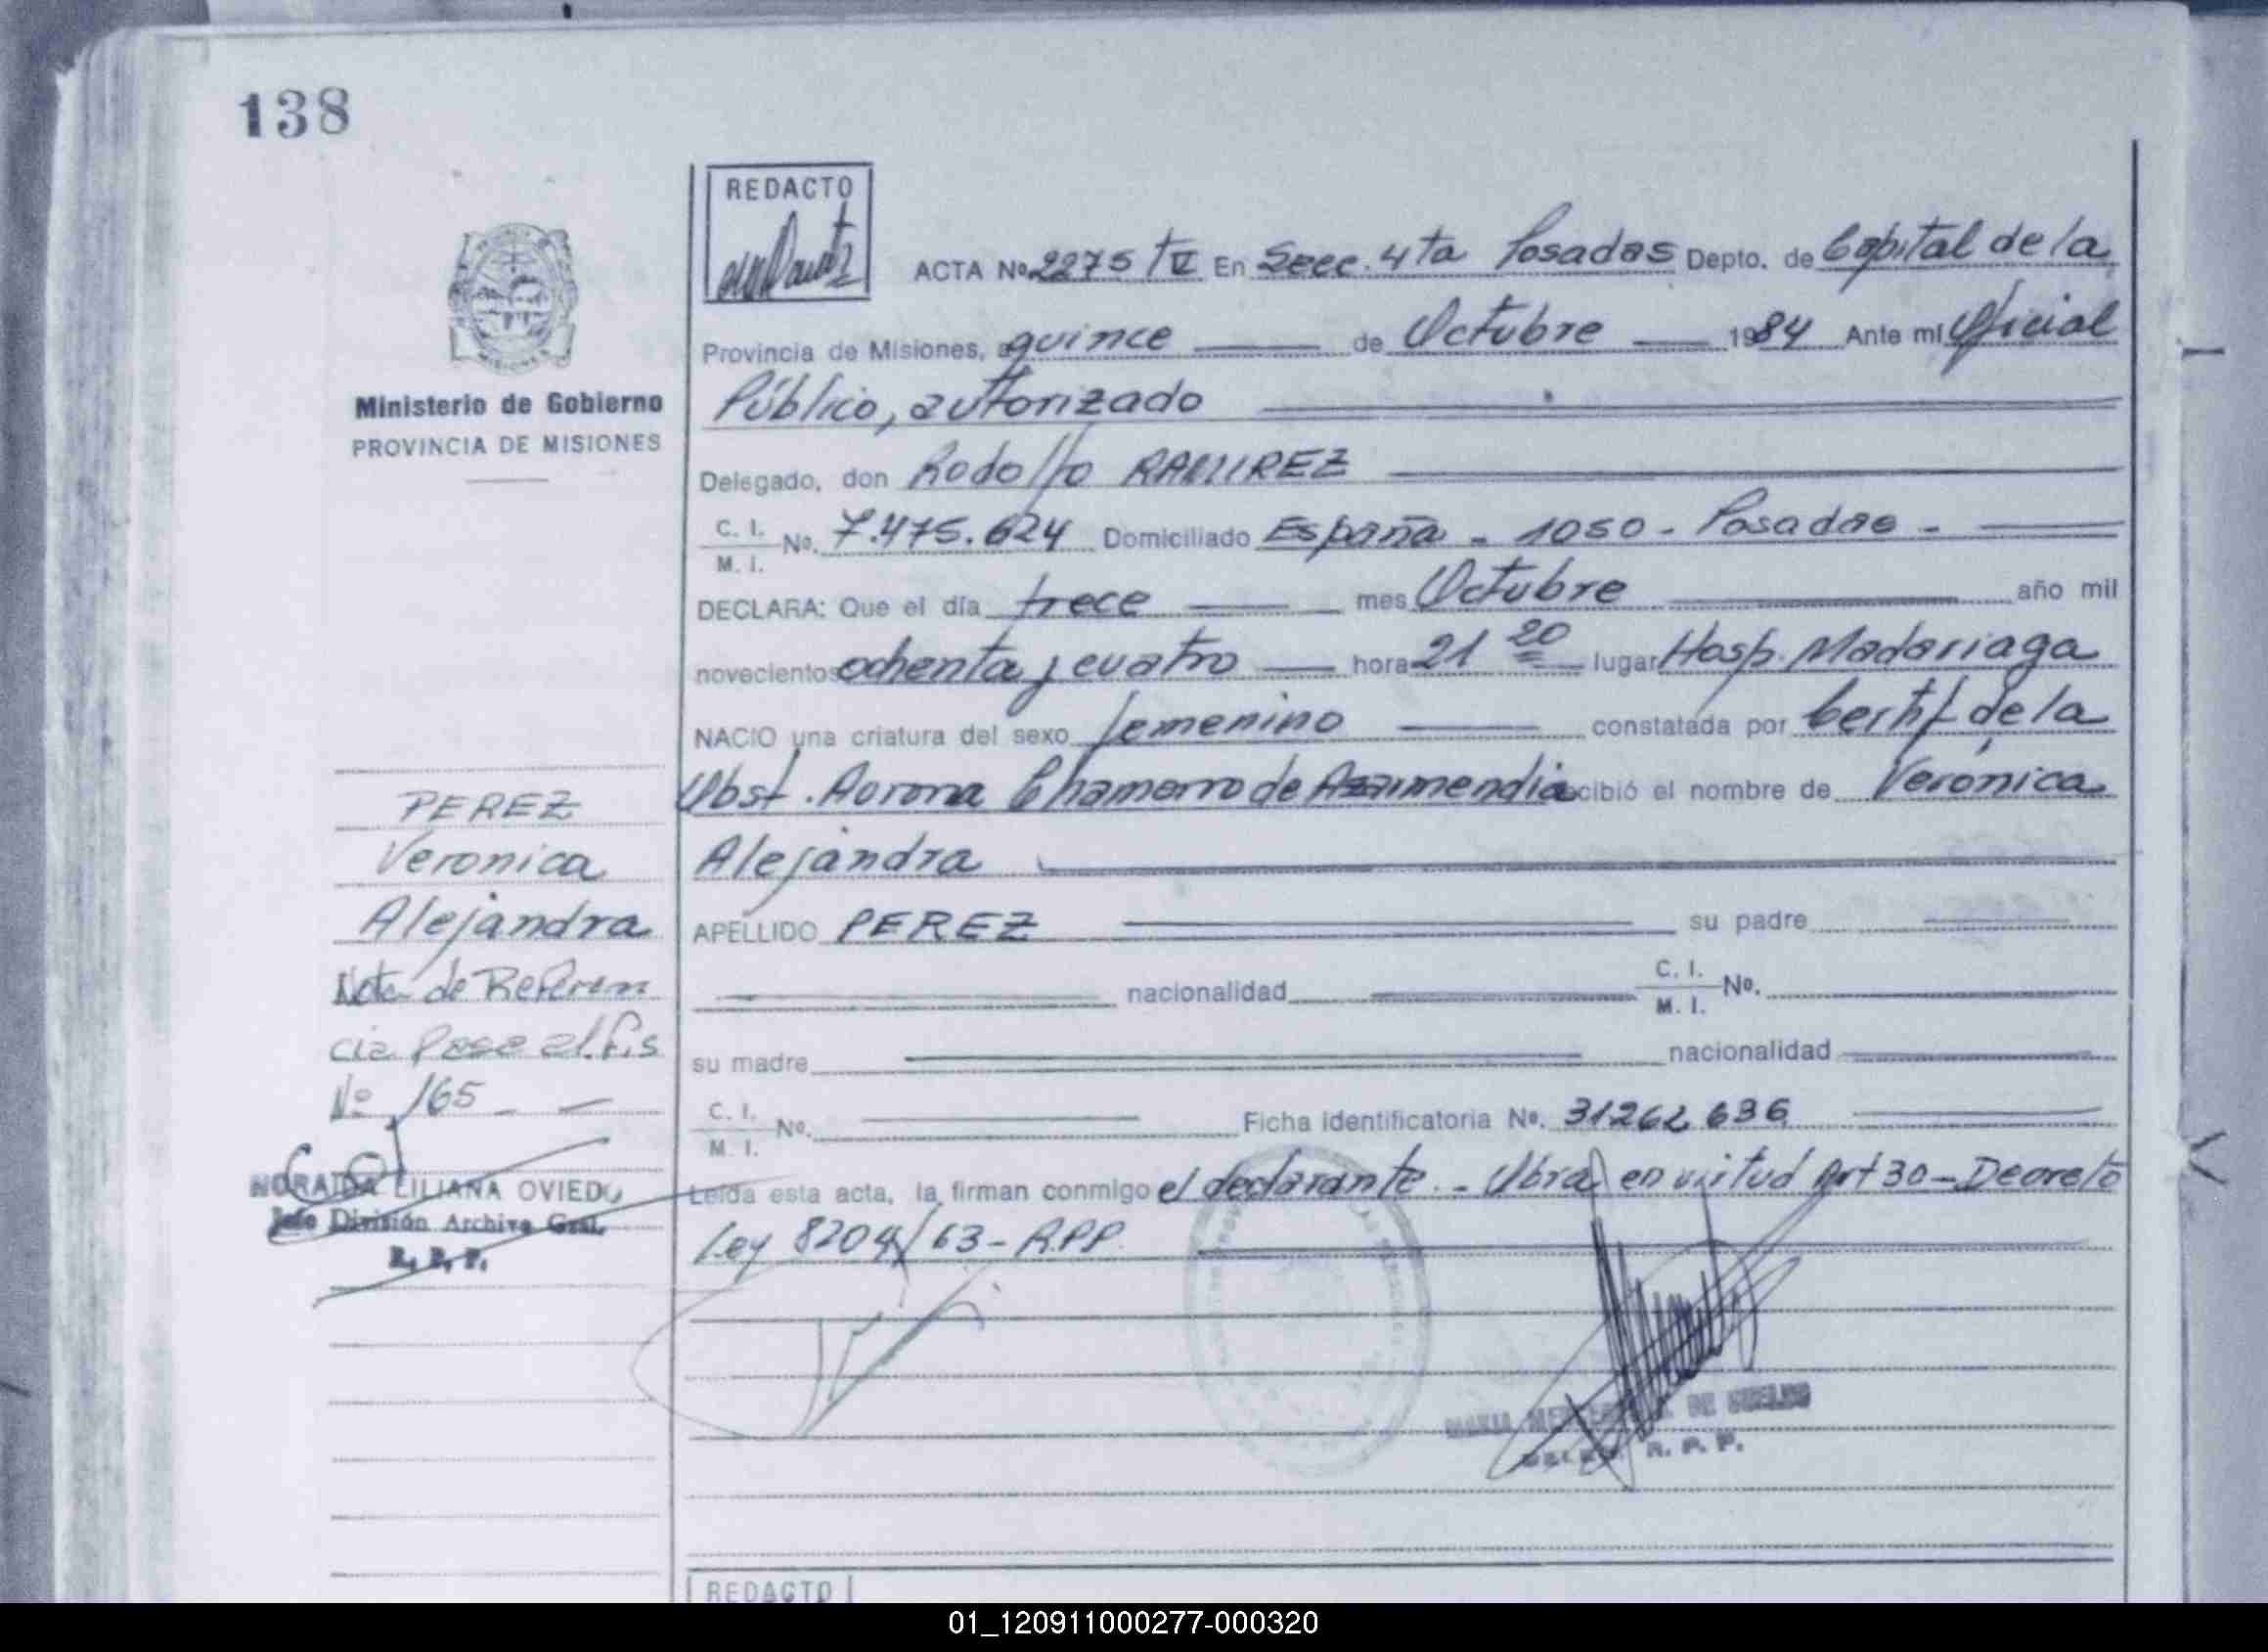 138
REDACTO
ACTA Nº 2275 /IV En Secc. 4ta Posadas Depto. de Capital de la
Provincia de Misiones, a quince de Octubre 1984 Ante mí Oficial
Público, autorizado
Delegado, don Rodolfo RAMIREZ
C. I. M. I. No. 7.475.624 Domiciliado España - 1050 - Posadas -
DECLARA: Que el día trece mes Octubre año mil
novecientos ochenta y cuatro hora 21 20 lugar Hosp. Madariaga
NACIO una criatura del sexo femenino constatada por Certif. de la
Obst. Aurora Chamorro de cibió el nombre de Verónica
Alejandra
APELLIDO PEREZ su padre
nacionalidad C. I. M. I. No.
su madre nacionalidad
C. I. M. I. No. Ficha identificatoria No. 31262636
Leída esta acta, la firman conmigo el declarante. - Obra en virtud Art 30 - Decreto
Ley 8204/63 - R.P.P.
DE
R. P. P.
REDACTO
Ministerio de Gobierno
PROVINCIA DE MISIONES
PEREZ
Veronica
Alejandra
Nota de Referen
cia Pase al Fis
No 165
LILIANA OVIEDO
Jefe División Archivo Gral.
R. P. P.
01_120911000277-000320